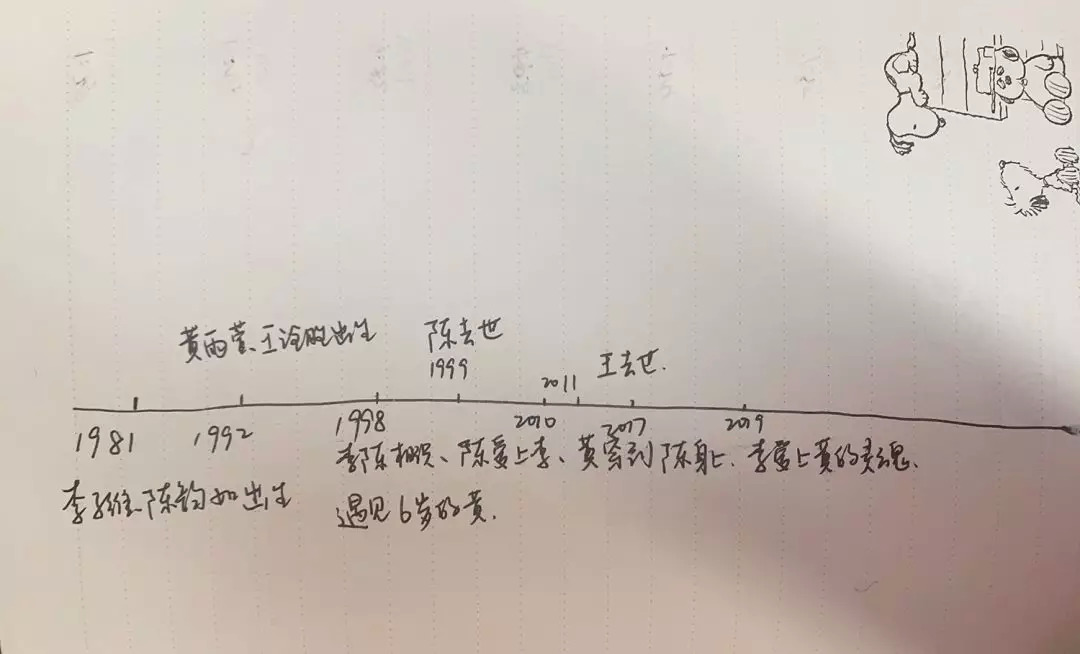 黄雨萱、王诠胜出生 陈去世
1999
2011 王去世.
1981 1992 1998 2010 2017 2019
李陈相识、陈爱上李、黄穿到陈身上. 李爱上黄的灵魂.
李子维、陈韵如出生
遇见6岁的黄.